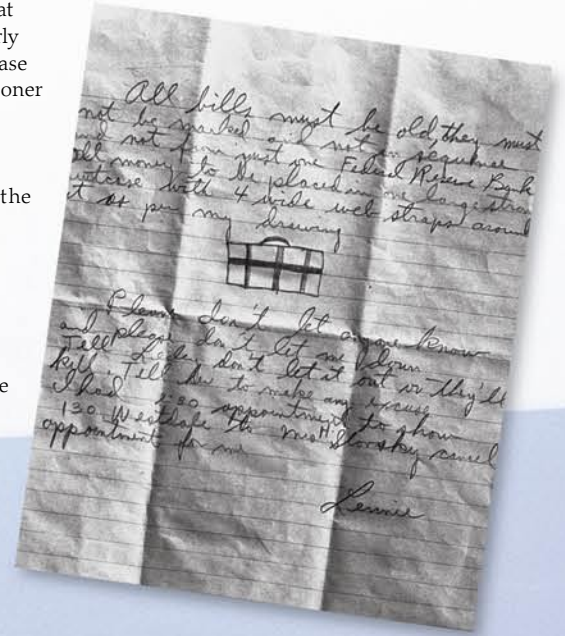 at
rly
ase
oner
the
e
All bills must be old, they must
not be marked and not in sequence
and not from just one Federal Reserve Bank
all money to be placed in one large strong
suitcase with 4 wide web straps around
it as per my drawing
Please don't let anyone know
and please don't let me down
Tell don't let it out or they'll
kill. Tell her to make any excuse
I had appointment to show
130 Westdale to cancel
appointment for me
Lennie